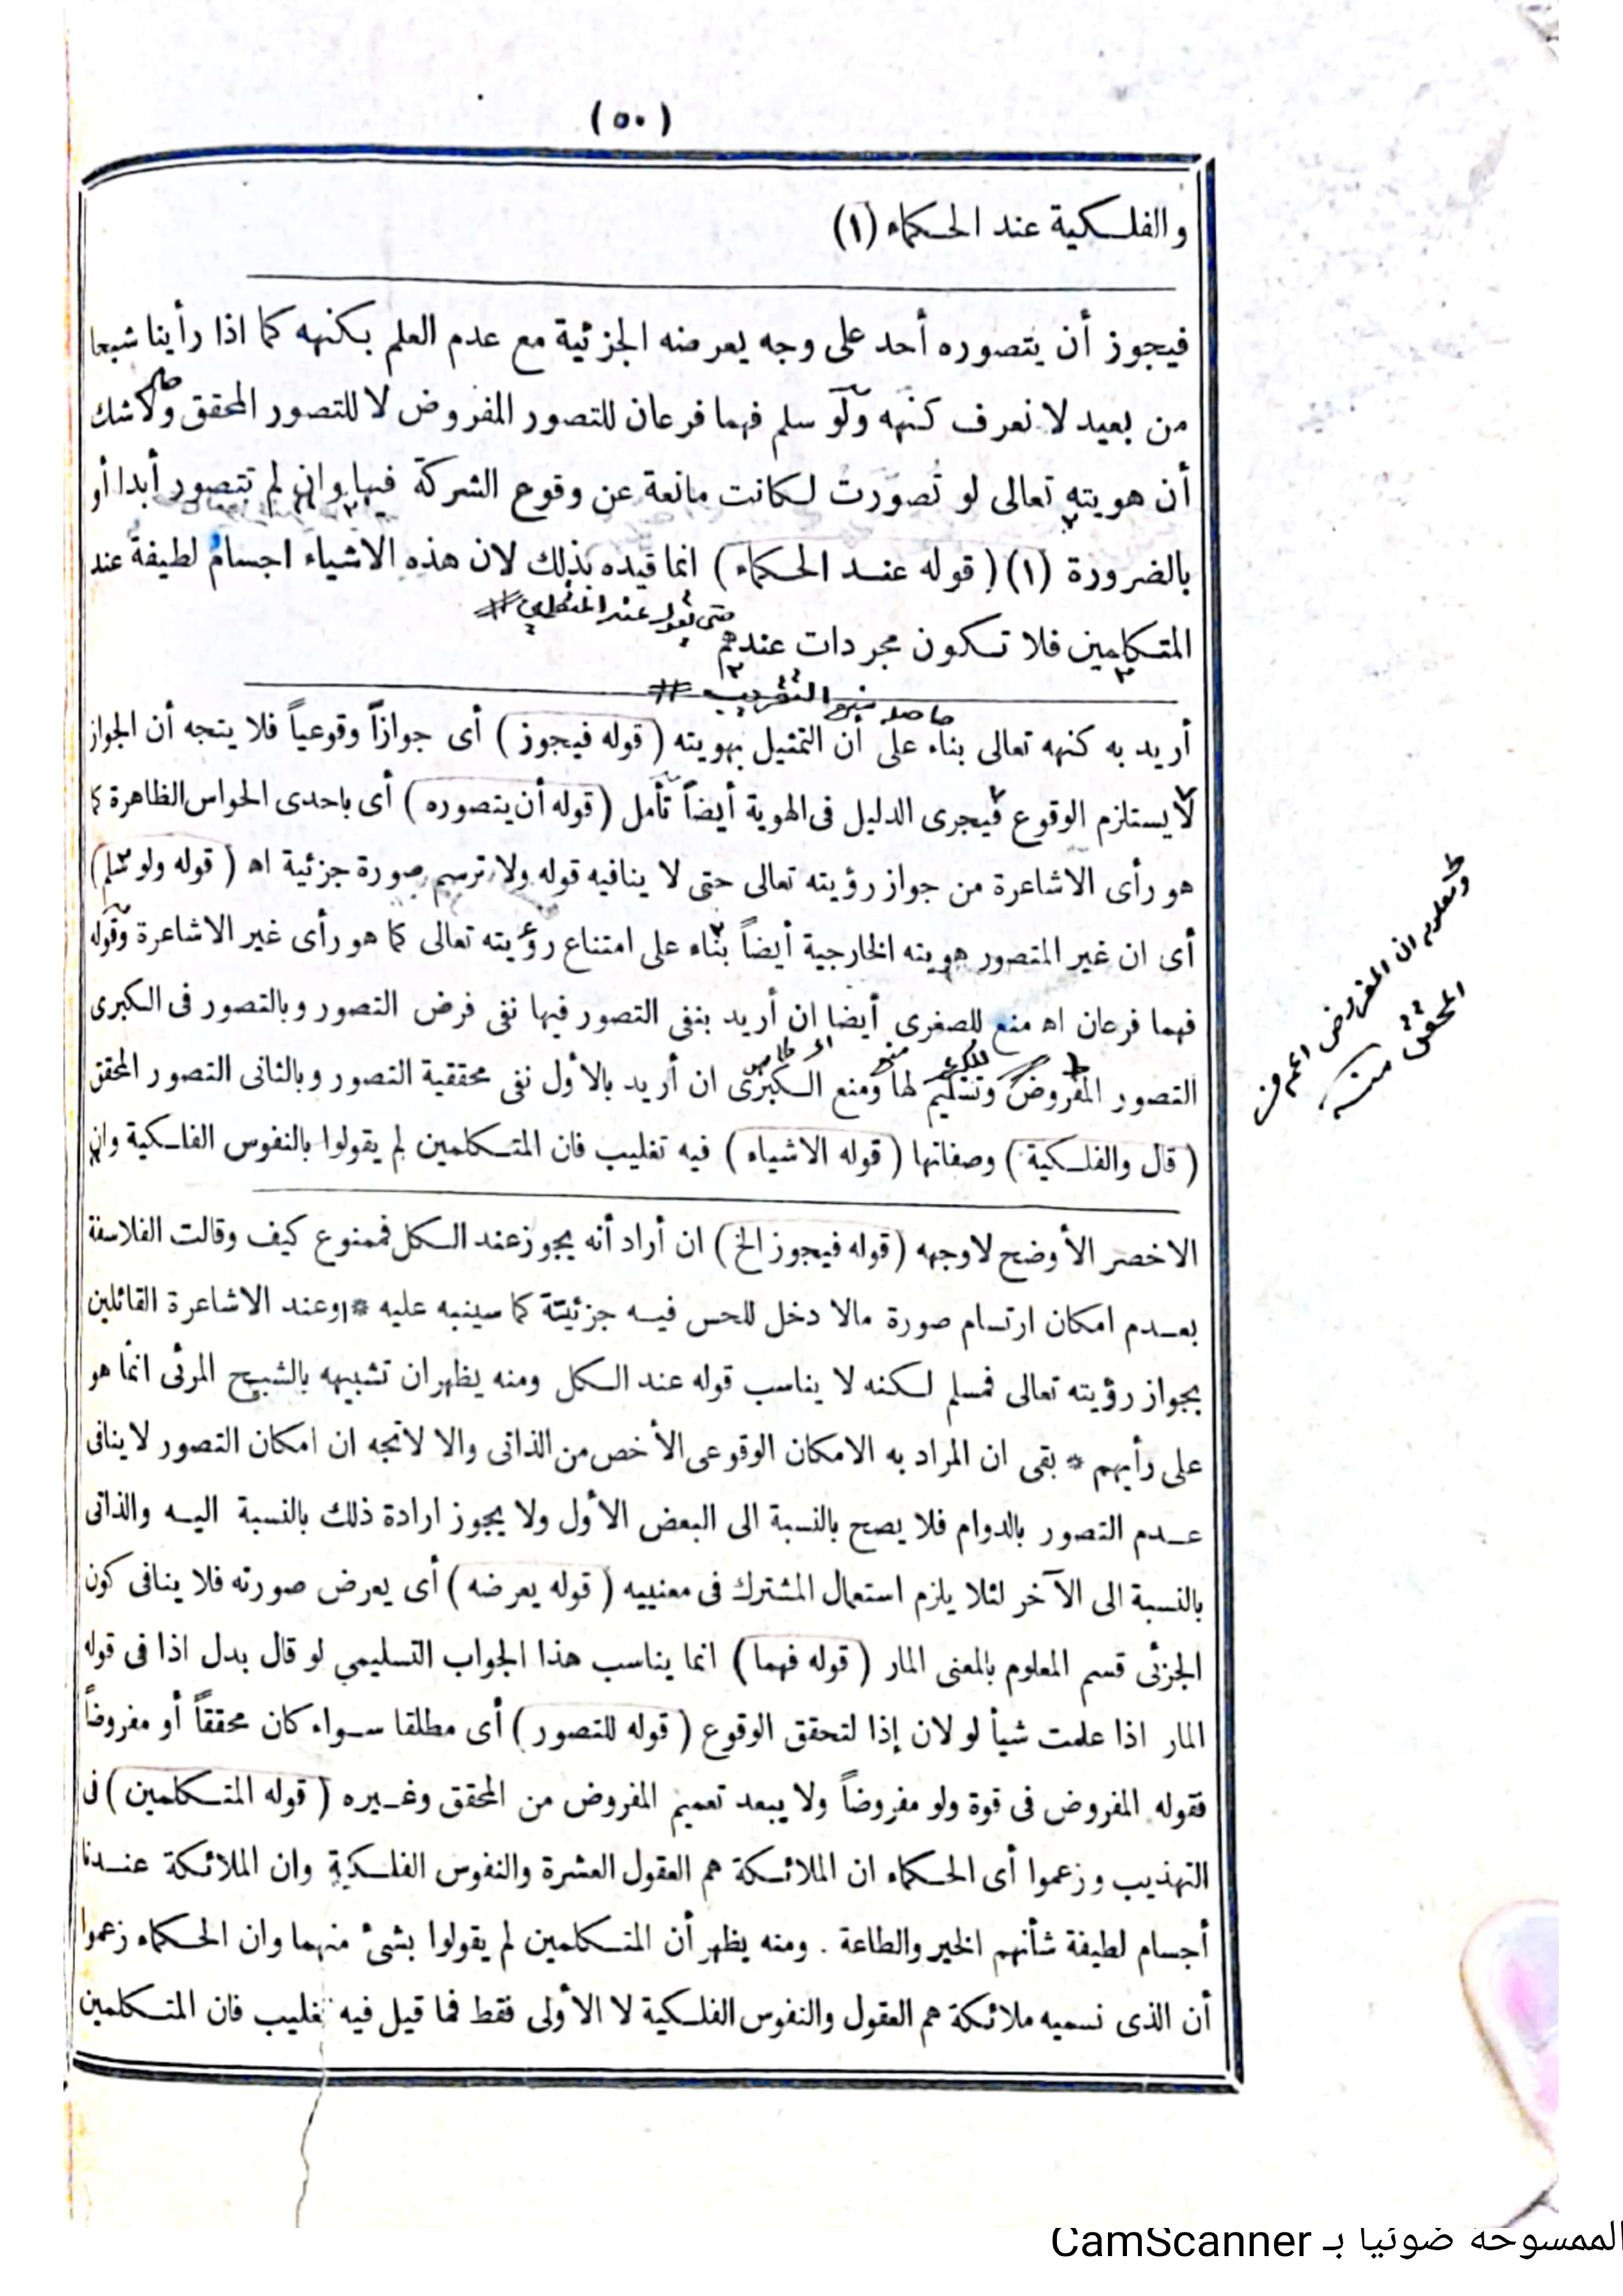 (٥٠)
والفلكية عند الحكماء (١)
فيجوز أن يتصوره أحد على وجه يعرضه الجزئية مع عدم العلم بكنهه كما اذا رأينا شبحا
من بعيد لا نعرف كنهه ولو سلم فهما فرعان للتصور المفروض لا للتصور المحقق ولا شك
أن هويته تعالى لو تُصورت لكانت مانعة عن وقوع الشركة فيها وان لم تتصور أبدا أو
بالضرورة (١) (قوله عند الحكماء) انما قيده بذلك لان هذه الاشياء اجسام لطيفة عند
حتى يقول عند المتكلمين #
المتكلمين فلا تكون مجردات عندهم
حاصله منع التقريب #
أريد به كنهه تعالى بناء على أن التمثيل بهويته (قوله فيجوز) أى جوازاً وقوعياً فلا يتجه أن الجواز
لا يستلزم الوقوع فيجرى الدليل فى الهوية أيضاً تأمل (قوله أن يتصوره) أى باحدى الحواس الظاهرة كما
هو رأى الاشاعرة من جواز رؤيته تعالى حتى لا ينافيه قوله ولا ترسم صورة جزئية اه (قوله ولو سلم)
أى ان غير المتصور هويته الخارجية أيضاً بناء على امتناع رؤيته تعالى كما هو رأى غير الاشاعرة وقوله
فهما فرعان اه منع للصغرى أيضا ان أريد بنفى التصور فيها نفى فرض التصور وبالتصور فى الكبرى
التصور المفروض وتسليم لها ومنع الكبرى ان أريد بالأول نفى محققية التصور وبالثانى التصور المحقق
ومعلوم ان المفروض اعم من
المحقق منه
(قال والفلكية) وصفاتها (قوله الاشياء) فيه تغليب فان المتكلمين لم يقولوا بالنفوس الفلكية وان
الاخصر الأوضح لاوجهه (قوله فيجوز الخ) ان أراد أنه يجوز عند الكل فممنوع كيف وقالت الفلاسفة
بعدم امكان ارتسام صورة مالا دخل للحس فيه جزئية كما سينبه عليه * أو عند الاشاعرة القائلين
بجواز رؤيته تعالى فمسلم لكنه لا يناسب قوله عند الكل ومنه يظهر ان تشبيهه بالشبح المرئى انما هو
على رأيهم * بقى ان المراد به الامكان الوقوعى الأخص من الذاتى والا لاتجه ان امكان التصور لا ينافى
عدم التصور بالدوام فلا يصح بالنسبة الى البعض الأول ولا يجوز ارادة ذلك بالنسبة اليه والذاتى
بالنسبة الى الآخر لئلا يلزم استعمال المشترك فى معنييه (قوله يعرضه) أى يعرض صورته فلا ينافى كون
الجزئى قسم المعلوم بالمعنى المار (قوله فهما) انما يناسب هذا الجواب التسليمي لو قال بدل اذا فى قوله
المار اذا علمت شيأ لو لان إذا لتحقق الوقوع (قوله للتصور) أى مطلقا سواء كان محققاً أو مفروضاً
فقوله المفروض فى قوة ولو مفروضاً ولا يبعد تعميم المفروض من المحقق وغيره (قوله المتكلمين) فى
التهذيب وزعموا أى الحكماء ان الملائكة هم العقول العشرة والنفوس الفلكية وان الملائكة عندنا
أجسام لطيفة شأنهم الخير والطاعة . ومنه يظهر أن المتكلمين لم يقولوا بشئ منهما وان الحكماء زعموا
أن الذى نسميه ملائكة هم العقول والنفوس الفلكية لا الأولى فقط فما قيل فيه تغليب فان المتكلمين
الممسوحة ضوئيا بـ CamScanner